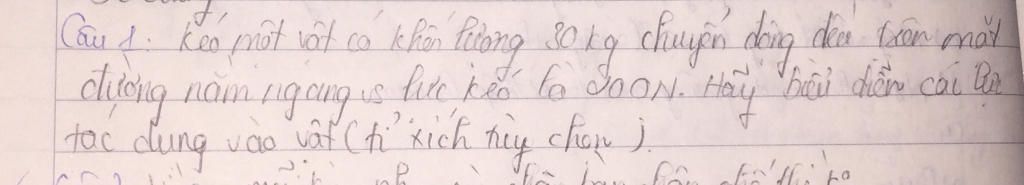 Câu 1: Kéo một vật có khối lượng 30kg chuyển động đều trên mặt
đường nằm ngang vs lực kéo là 200N. Hãy biểu diễn các lực
tác dụng vào vật (tỉ xích tùy chọn).